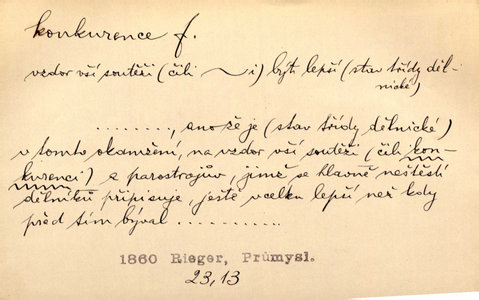 konkurence f.
vzdor vší soutěži (čili ~i) býti lepší (stav třídy děl-
nické)
........, ano že je (stav třídy dělnické)
v tomto okamžení, na vzdor vší soutěži (čili kon-
kurenci) a parostrojův, jimž se hlavně neštěstí
dělníků připisuje, ještě vcelku lepší než kdy
před tím býval ...........
1860 Rieger, Průmysl.
23,13